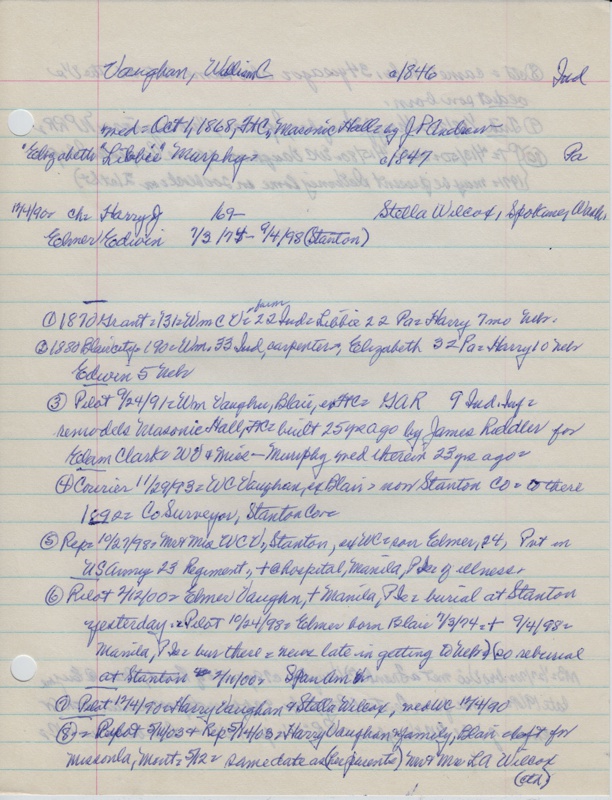 Vaughan, William C. a1846 Ind
med = Oct 1, 1868, FtC, Masonic Hall = by J P Andrew
"Elizabeth "Libbie" Murphy = a1847 Pa
12/4/90 = ch = Harry J 169 - Stella Wilcox, Spokane, Wash.
Elmer Edwin 7/3/74 - 9/4/98 (Stanton)
① 1870 Grant = 131 = Wm C V = farm 22 Ind = Libbie 22 Pa = Harry 7mo Nebr.
② 1880 Blair city = 190 = Wm. 33 Ind, carpenter =, Elizabeth 32 Pa = Harry 10 Nebr
Edwin 5 Nebr
③ Pilot 9/24/91 = Wm Vaughn, Blair, ex FtC = GAR 9 Ind. Inf =
remodels Masonic Hall, FtC = built 25 yrs ago by James Riddler for
Adam Clark = WV & Miss - Murphy med therein 23 yrs ago =
④ Courier 11/29/93 = WC Vaughan, ex Blair = now Stanton Co = to there
1890 = Co Surveyor, Stanton Co =
⑤ Rep = 10/27/98 = Mr & Mrs WCV, Stanton, ex WC = son Elmer, 24, Pvt in
US Army 23 Regiment, + @ hospital, Manila, P Is = of illness.
⑥ Pilot 2/12/00 = Elmer Vaughn, + Manila, P Is = burial at Stanton
yesterday. = Pilot 10/24/98 = Elmer born Blair 7/3/74 = + 9/4/98 =
Manila, P Is = bur there = news late in getting to Nebr) (so reburial
at Stanton 2/11/00 = Span Am
⑦ Pilot 12/4/90 = Harry Vaughan & Stella Wilcox, med WC 12/4/90
⑧ = Pilot 5/14/03 + Rep 5/14/03 = Harry Vaughan & family, Blair dept for
Missoula, Mont = 5/12 = same date as (her parents) Mr & Mrs LA Wilcox